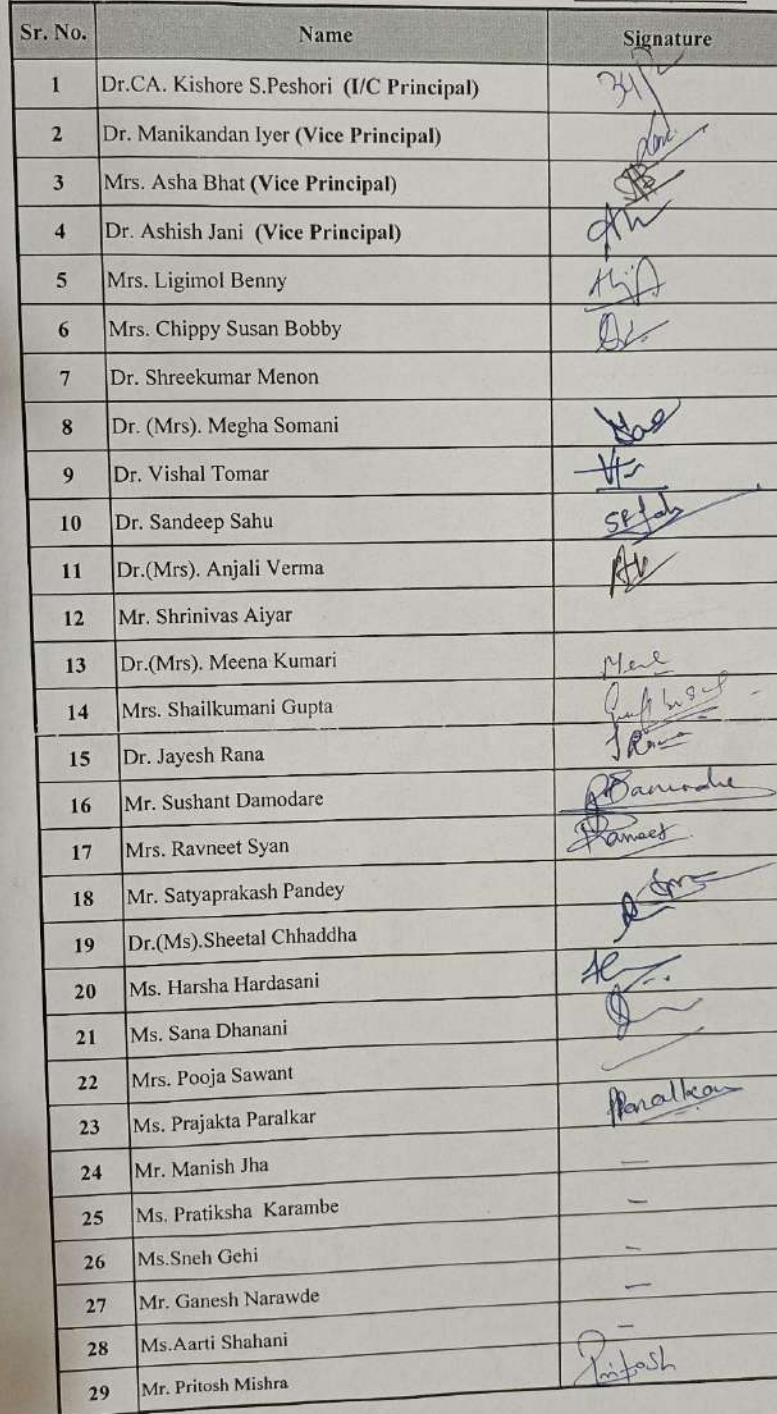 Sr. No. Name Signature
1 Dr.CA. Kishore S.Peshori (I/C Principal)
2 Dr. Manikandan Iyer (Vice Principal)
3 Mrs. Asha Bhat (Vice Principal)
4 Dr. Ashish Jani (Vice Principal)
5 Mrs. Ligimol Benny
6 Mrs. Chippy Susan Bobby
7 Dr. Shreekumar Menon
8 Dr. (Mrs). Megha Somani
9 Dr. Vishal Tomar
10 Dr. Sandeep Sahu
11 Dr.(Mrs). Anjali Verma
12 Mr. Shrinivas Aiyar
13 Dr.(Mrs). Meena Kumari
14 Mrs. Shailkumani Gupta
15 Dr. Jayesh Rana JRana
16 Mr. Sushant Damodare
17 Mrs. Ravneet Syan
18 Mr. Satyaprakash Pandey
19 Dr.(Ms).Sheetal Chhaddha
20 Ms. Harsha Hardasani
21 Ms. Sana Dhanani
22 Mrs. Pooja Sawant
23 Ms. Prajakta Paralkar PParalkar
24 Mr. Manish Jha —
25 Ms. Pratiksha Karambe —
26 Ms.Sneh Gehi —
27 Mr. Ganesh Narawde —
28 Ms.Aarti Shahani —
29 Mr. Pritosh Mishra Pritosh